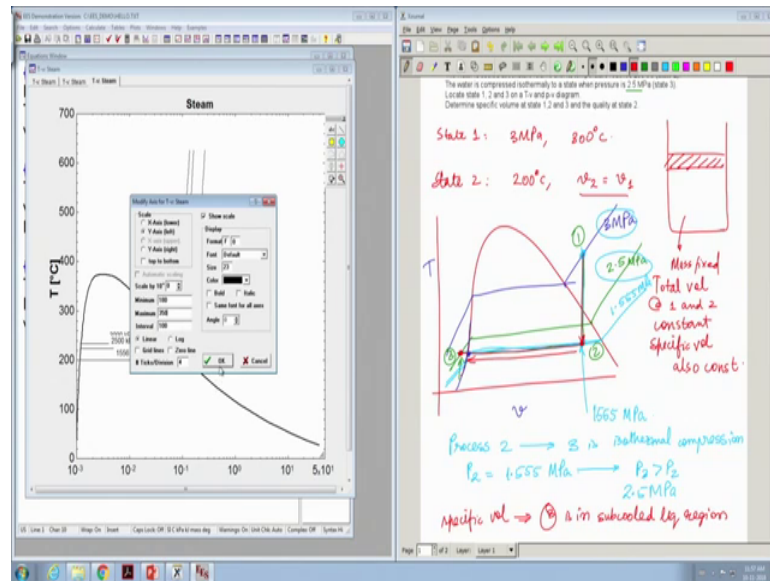 EES Demonstration Version C:\EES_DEMO\HELLO.TXT
File Edit Search Options Calculate Tables Plots Windows Help Examples
Equations Window
T-v: Steam
T-v: Steam T-v: Steam T-v: Steam
Steam
700
600
500
400
300
200
100
0
T [°C]
2500
10-3 10-2 10-1 100 101 5x101
Modify Axis for T-v: Steam
Scale
X-Axis (lower)
Y-Axis (left)
X-Axis (upper)
Y-Axis (right)
top to bottom
Automatic scaling
Scale by 10^ 0
Minimum 100
Maximum 350
Interval 100
Linear Log
Grid lines Zero line
# Ticks/Division 4
Show scale
Display
Format F 0
Font Default
Size 23
Color
Bold Italic
Same font for all axes
Angle 0
OK Cancel
US Line: 1 Char: 10 Wrap: On Insert Caps Lock: Off SI C kPa kJ mass deg Warnings: On Unit Chk: Auto Complex: Off
Xournal
File Edit View Page Tools Options Help
The water is compressed isothermally to a state when pressure is 2.5 MPa (state 3).
Locate state 1, 2 and 3 on a T-v and p-v diagram
Determine specific volume at state 1,2 and 3 and the quality at state 2
State 1: 3MPa, 300°C.
State 2: 200°C, v2 = v1
T
v
3MPa
2.5 MPa
1.555 MPa
1
2
3
1555 MPa
Mass fixed
Total vol
@ 1 and 2
constant
specific vol
also const.
Process 2 → 3 is isothermal compression
P2 = 1.555 MPa → P2 > P2
2.5MPa
specific vol ⇒ 3 is in subcooled liq region
Page 1 of 2 Layer: Layer 1
11:57 AM